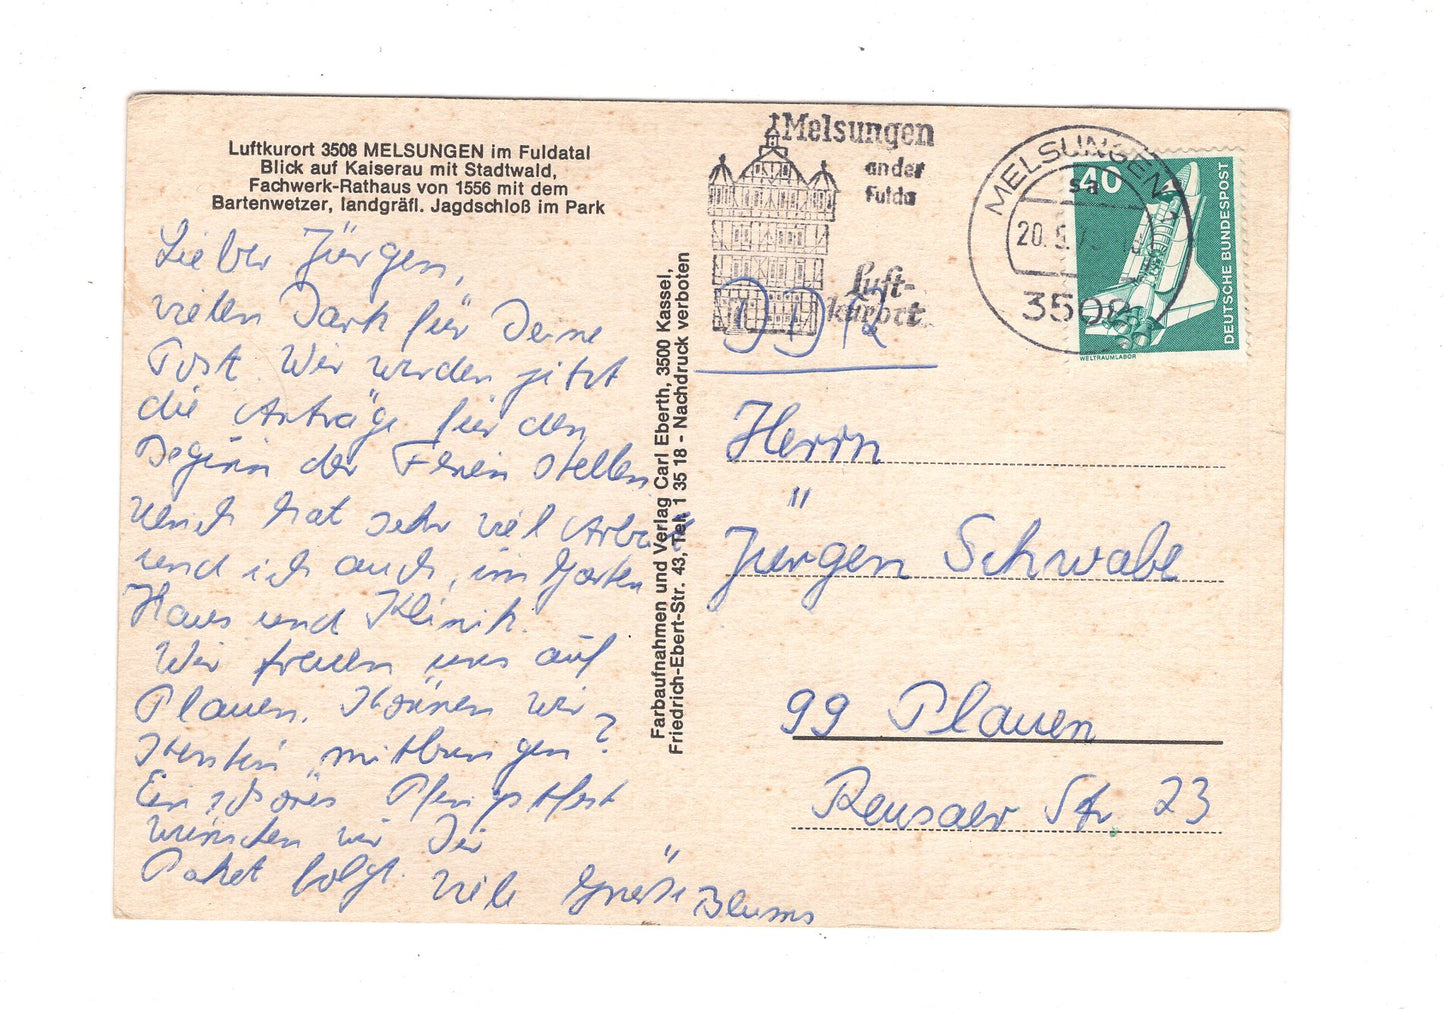 Luftkurort 3508 MELSUNGEN im Fuldatal
Blick auf Kaiserau mit Stadtwald,
Fachwerk-Rathaus von 1556 mit dem
Bartenwetzer, landgräfl. Jagdschloß im Park
Lieber Jürgen,
vielen Dank für Deine
Post. Wir werden jetzt
die Anträge für den
Beginn der Ferien stellen
Ulrich hat sehr viel Arbeit
und ich auch, im Garten
Haus und Klinik.
Wir freuen uns auf
Plauen. Können wir
Kerstin mitbringen?
Ein schönes Pfingstfest
wünschen wir Dir
Paket folgt. Viele Grüße Blums
Farbaufnahmen und Verlag Carl Eberth, 3500 Kassel,
Friedrich-Ebert-Str. 43, Tel. 1 35 18 - Nachdruck verboten
Melsungen
an der
Fulda
Luft-
kurort
MELSUNGEN 1
sa
20. 5. 7
3508
40
DEUTSCHE BUNDESPOST
WELTRAUMLABOR
DDR
Herrn
Jürgen Schwabe
99 Plauen
Reusaer Str. 23